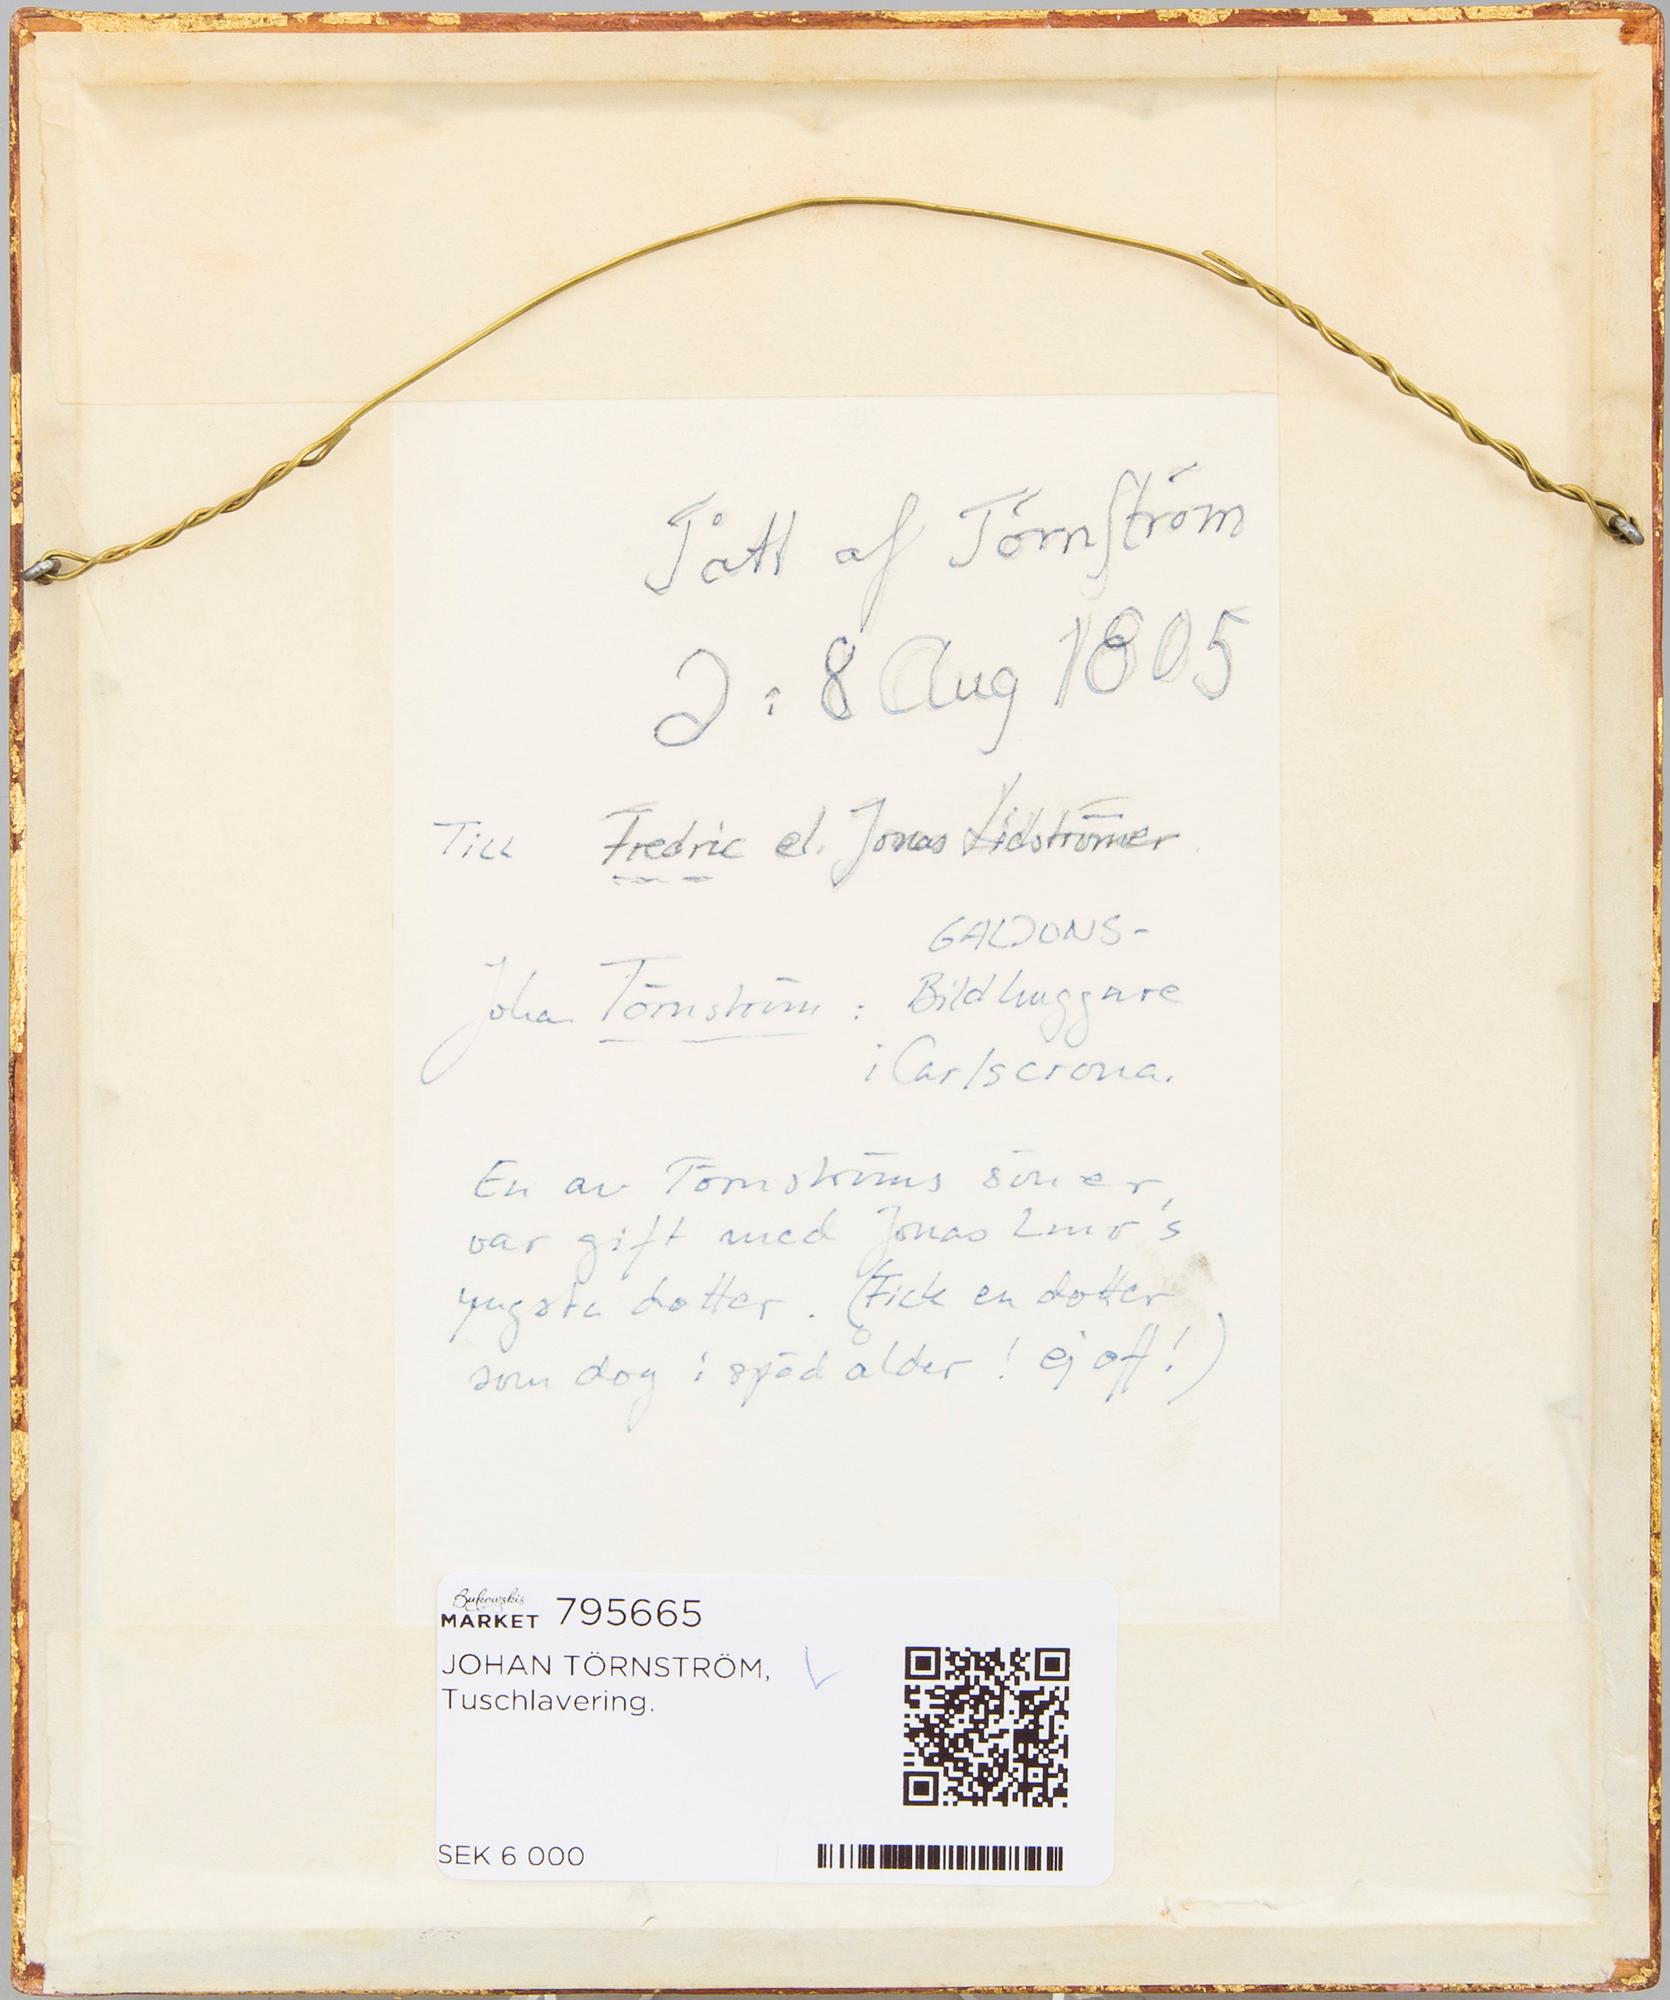 Fått af Törnström
D: 8 Aug 1805
Till Fredric el. Jonas Lidströmer
GALJONS-
Johan Törnström : Bildhuggare
i Carlscrona.
En av Törnströms söner,
var gift med Jonas Lmr's
yngsta dotter. (Fick en dotter
som dog i späd ålder! ej off!)
Bukowskis
MARKET 795665
JOHAN TÖRNSTRÖM,
Tuschlavering.
SEK 6 000